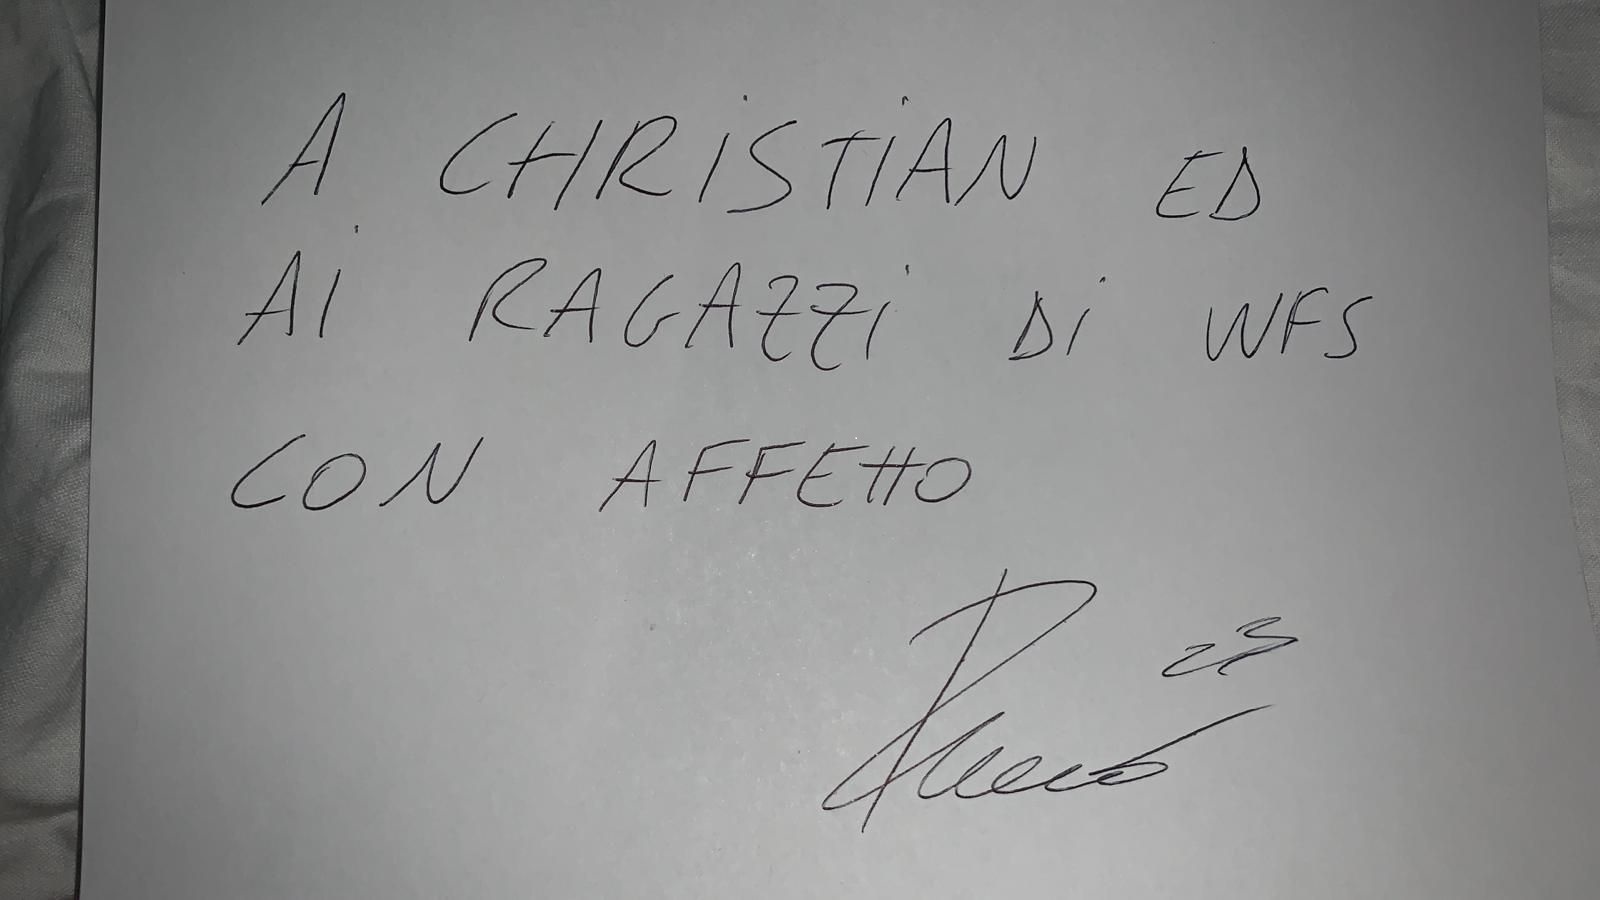 A CHRISTIAN ED
AI RAGAZZI DI WFS
CON AFFETTO
23